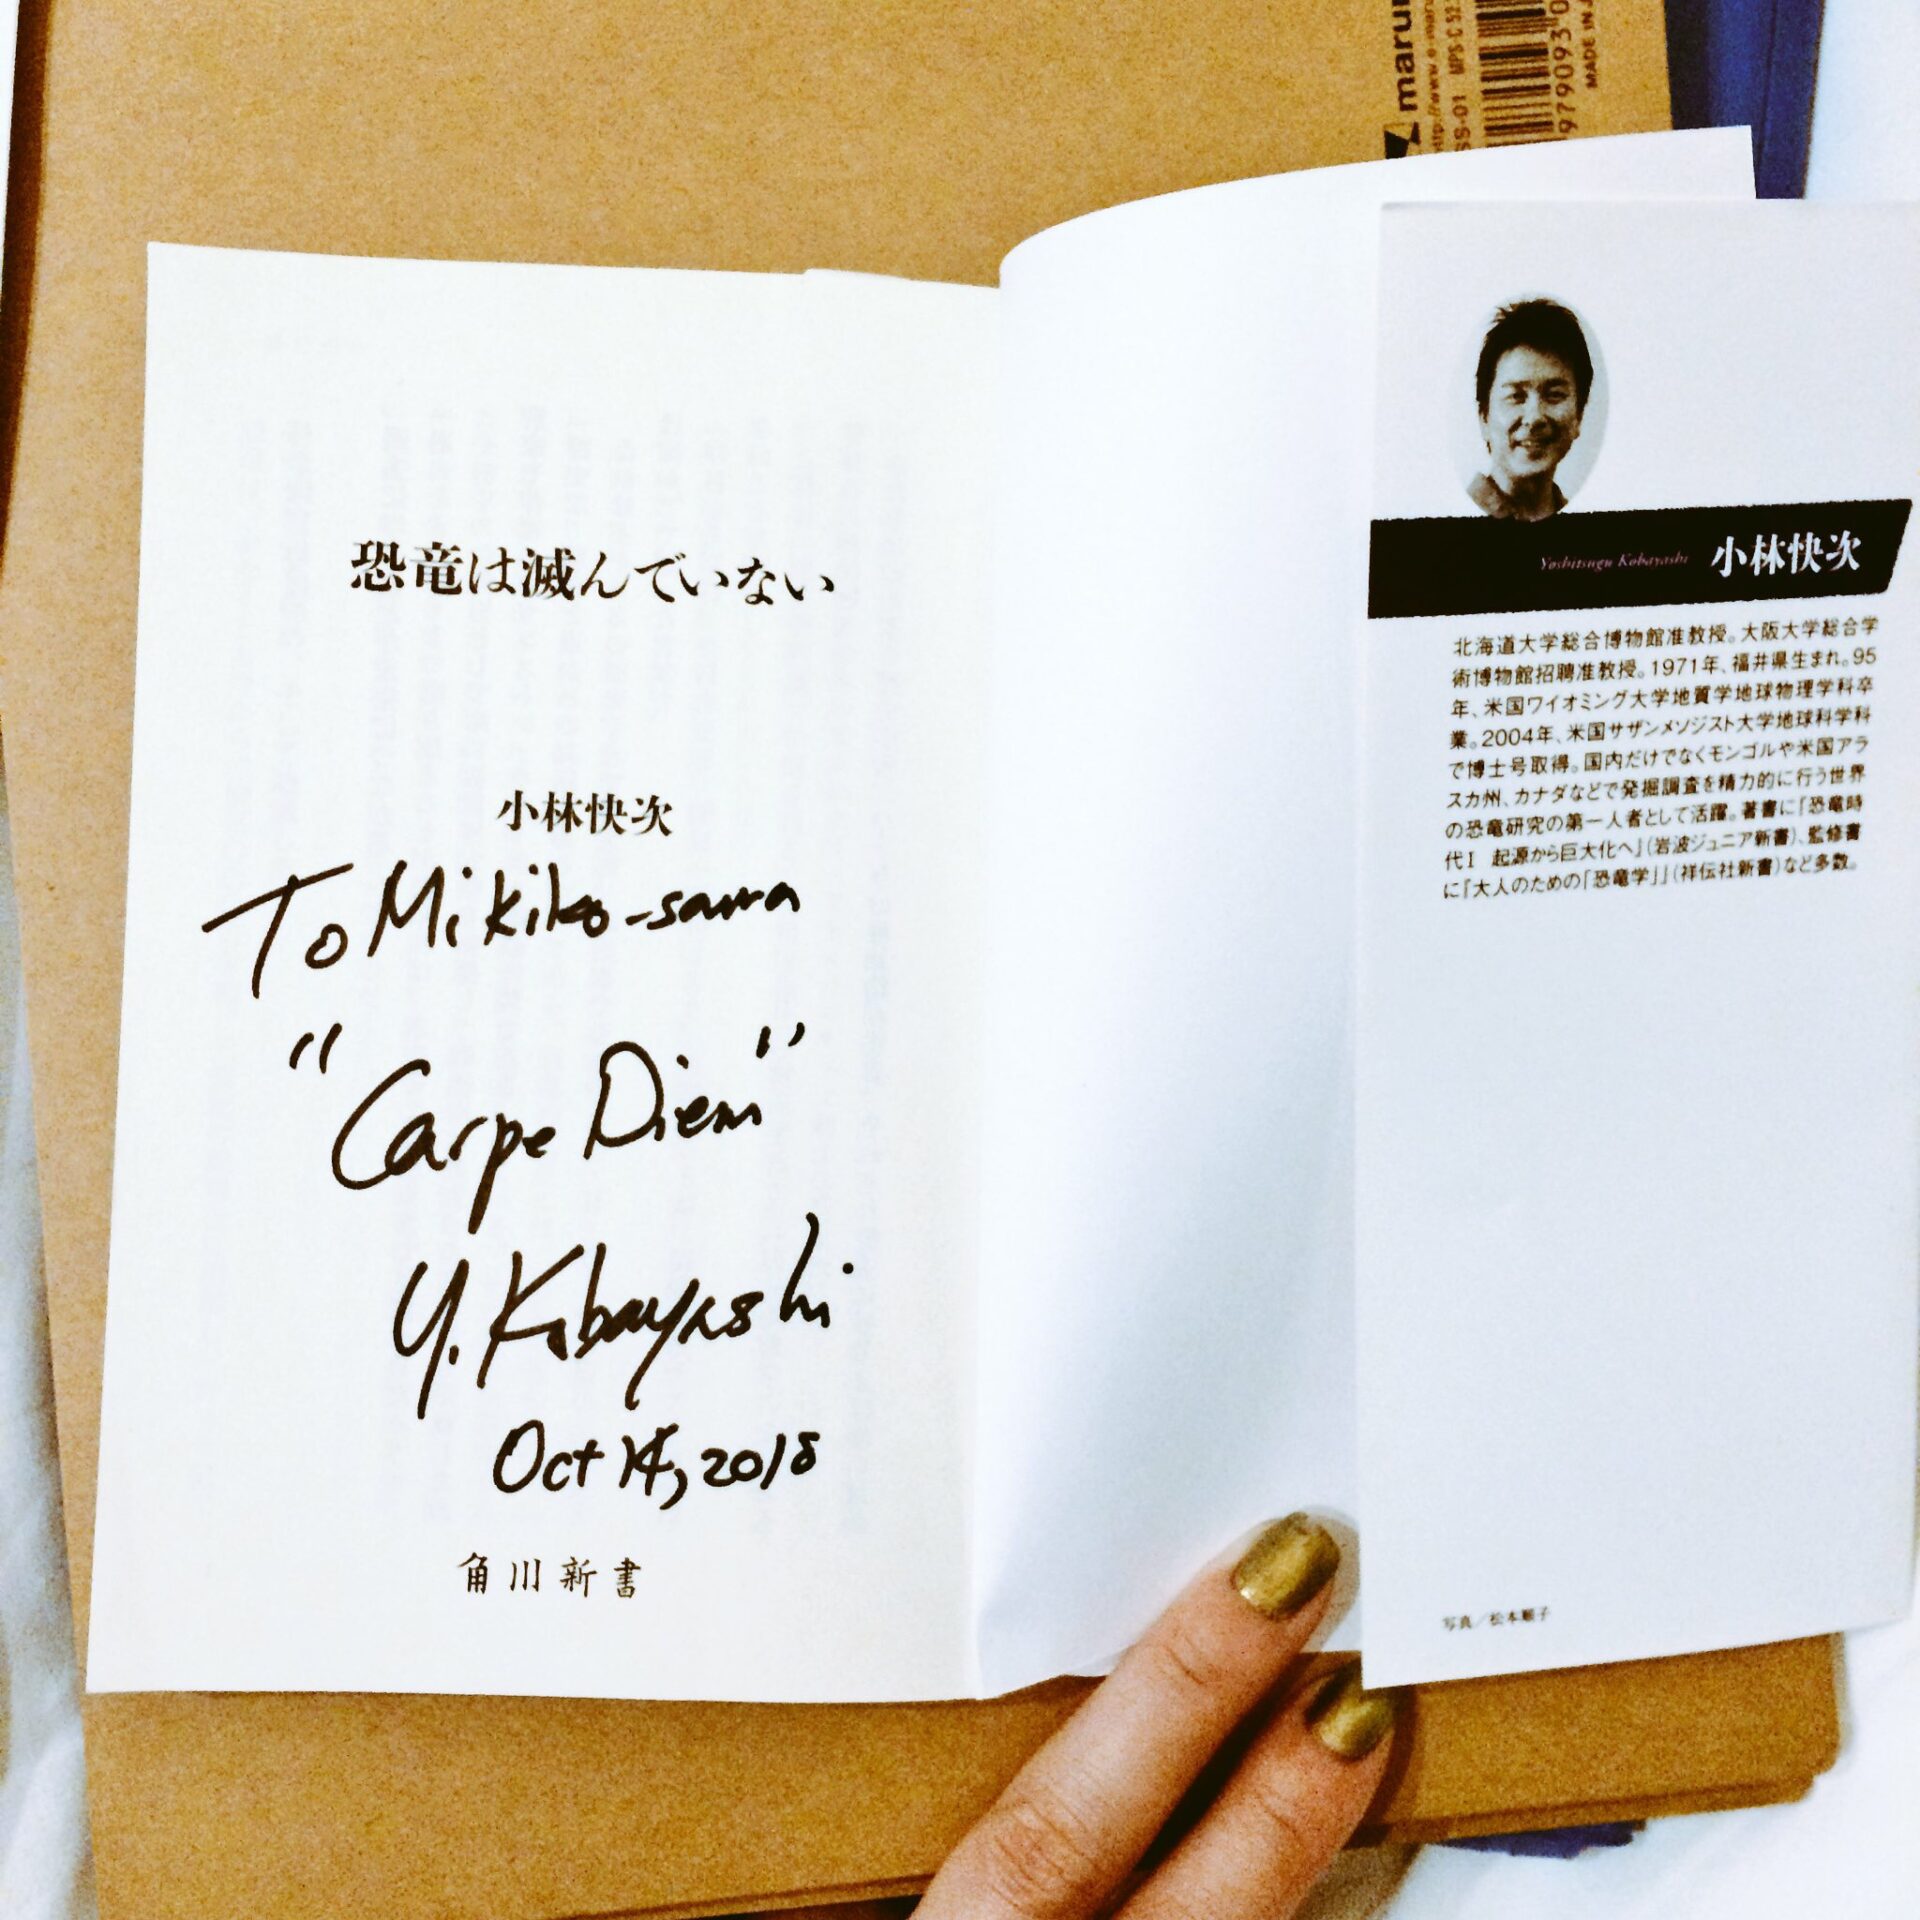 恐竜は滅んでいない
小林快次
To Mikiko-sama
"Carpe Diem"
Y. Kobayashi
Oct 14, 2018
角川新書
Yoshitsugu Kobayashi 小林快次
北海道大学総合博物館准教授。大阪大学総合学
術博物館招聘准教授。1971年、福井県生まれ。95
年、米国ワイオミング大学地質学地球物理学科卒
業。2004年、米国サザンメソジスト大学地球科学科
で博士号取得。国内だけでなくモンゴルや米国アラ
スカ州、カナダなどで発掘調査を精力的に行う世界
の恐竜研究の第一人者として活躍。著書に『恐竜時
代Ⅰ 起源から巨大化へ』（岩波ジュニア新書）、監修書
に『大人のための「恐竜学」』（祥伝社新書）など多数。
写真／松本順子
maru
http://www.e-maru
SS-01 MPS-C
9790930
MADE IN